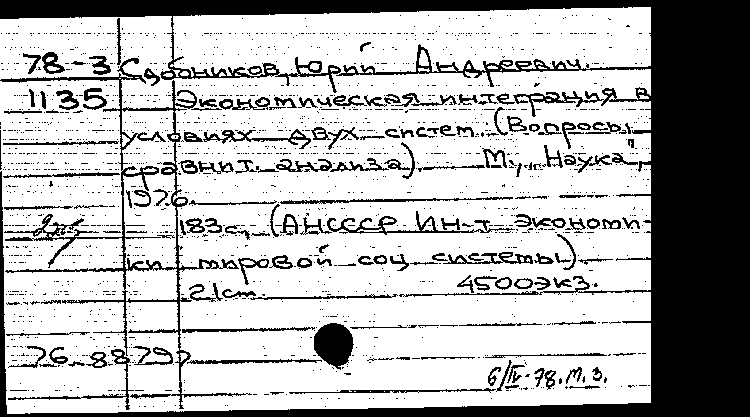 78-3 Сдобников, Юрий Андреевич.
1135 Экономическая интеграция в
условиях двух систем (Вопросы
сравнит. анализа). М., „Наука",
1976.
183с, (АНСССР Ин-т экономи-
ки мировой соц системы).
21cm. 4500экз.
76-88797
6/IV-78. М.З.